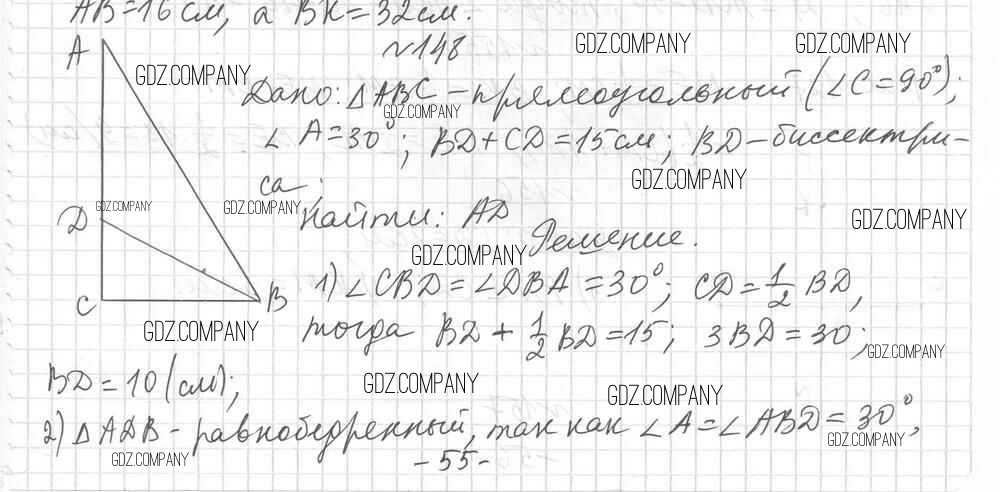 AB=16 см, а BK=32 см.
№148
A
GDZ.COMPANY
GDZ.COMPANY
GDZ.COMPANY
Дано: △ABC - прямоугольный (∠C=90°);
GDZ.COMPANY
∠A=30°; BD+CD=15 см; BD-биссектри-
са.
GDZ.COMPANY
GDZ.COMPANY
GDZ.COMPANY
Найти: AD
GDZ.COMPANY
D
Решение.
GDZ.COMPANY
1) ∠CBD=∠DBA=30°; CD=1/2 BD,
C
B
GDZ.COMPANY
тогда BD+1/2 BD=15; 3BD=30;
GDZ.COMPANY
BD=10 (см);
GDZ.COMPANY
GDZ.COMPANY
2) △ADB - равнобедренный, так как ∠A=∠ABD=30°;
GDZ.COMPANY
GDZ.COMPANY
-55-